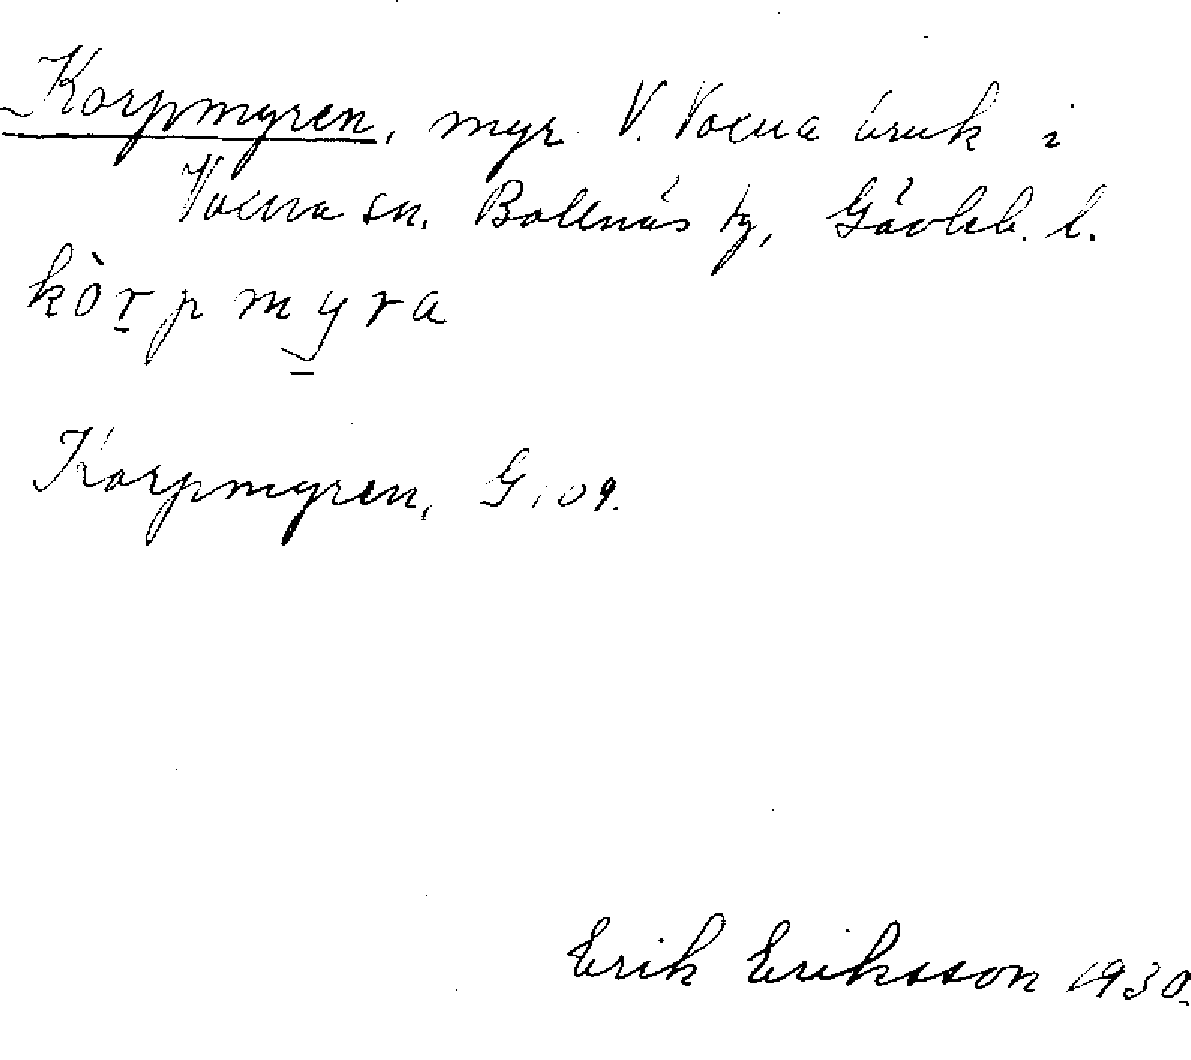 Korpmyren, myr V. Voxna bruk i
Voxna sn. Bollnäs tg, Gävleb. l.
kòrpmyra
Korpmyren, G 109.
Erik Eriksson 1930.